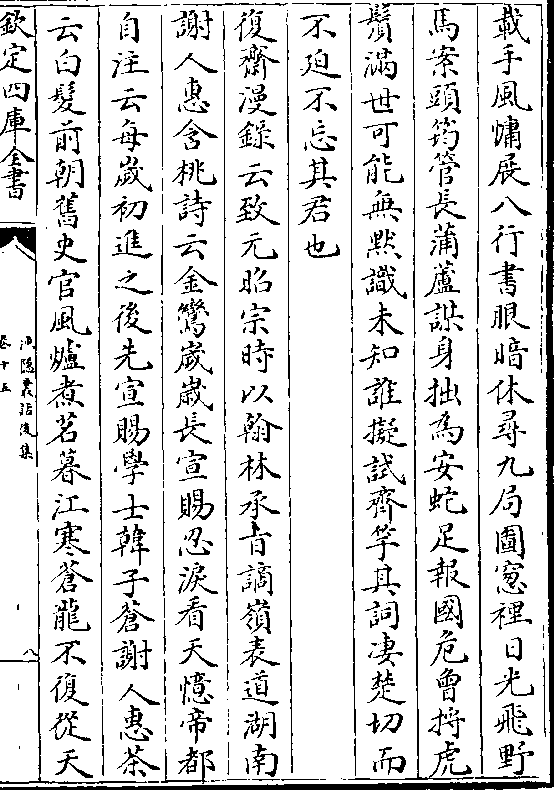 載手風慵展八行書眼暗休尋九局圖窻裡日光飛野
馬案頭筠管長蒲蘆謀身拙為安蛇足報國危曾捋虎
鬚滿世可能無黙識未知誰擬試齊竽其詞凄楚切而
不迫不忘其君也
復齋漫錄云致元昭宗時以翰林承旨謫嶺表道湖南
謝人惠含桃詩云金鸞嵗嵗長宣賜忍淚看天憶帝都
自注云每嵗初進之後先宣賜學士韓子蒼謝人惠茶
云白髮前朝舊史官風爐煮茗暮江寒蒼龍不復從天
欽定四庫全書
漁隠叢話後集
卷十五
八